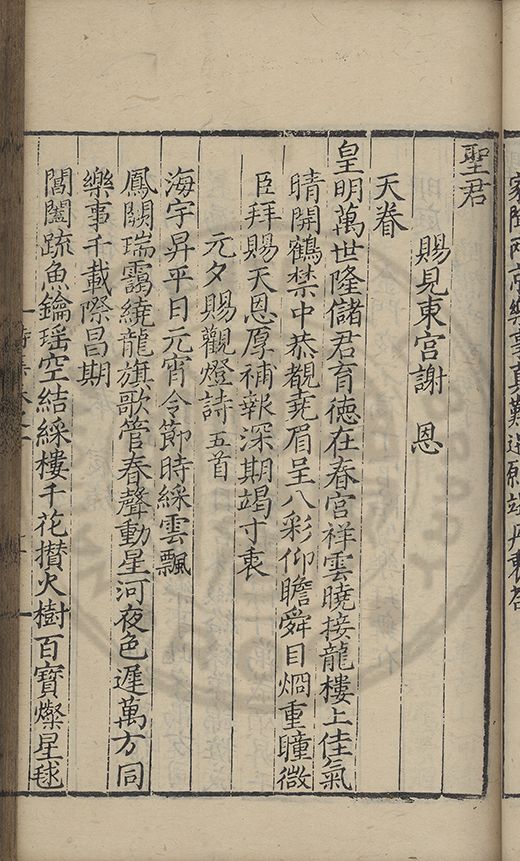 聖君
賜見東宮謝 恩
天眷
皇明萬世隆儲君育德在春宮祥雲曉接龍樓上佳氣
晴開鶴禁中恭覩堯眉呈八彩仰瞻舜目烱重瞳微
臣拜賜天恩厚補報深期竭寸衷
元夕賜觀燈詩五首
海宇昇平日元宵令節時綵雲飄
鳳闕瑞靄繞龍旗歌管春聲動星河夜色遲萬方同
樂事千載際昌期
閶闔疏魚鑰瑶空結綵樓千花攅火樹百寶燦星毬